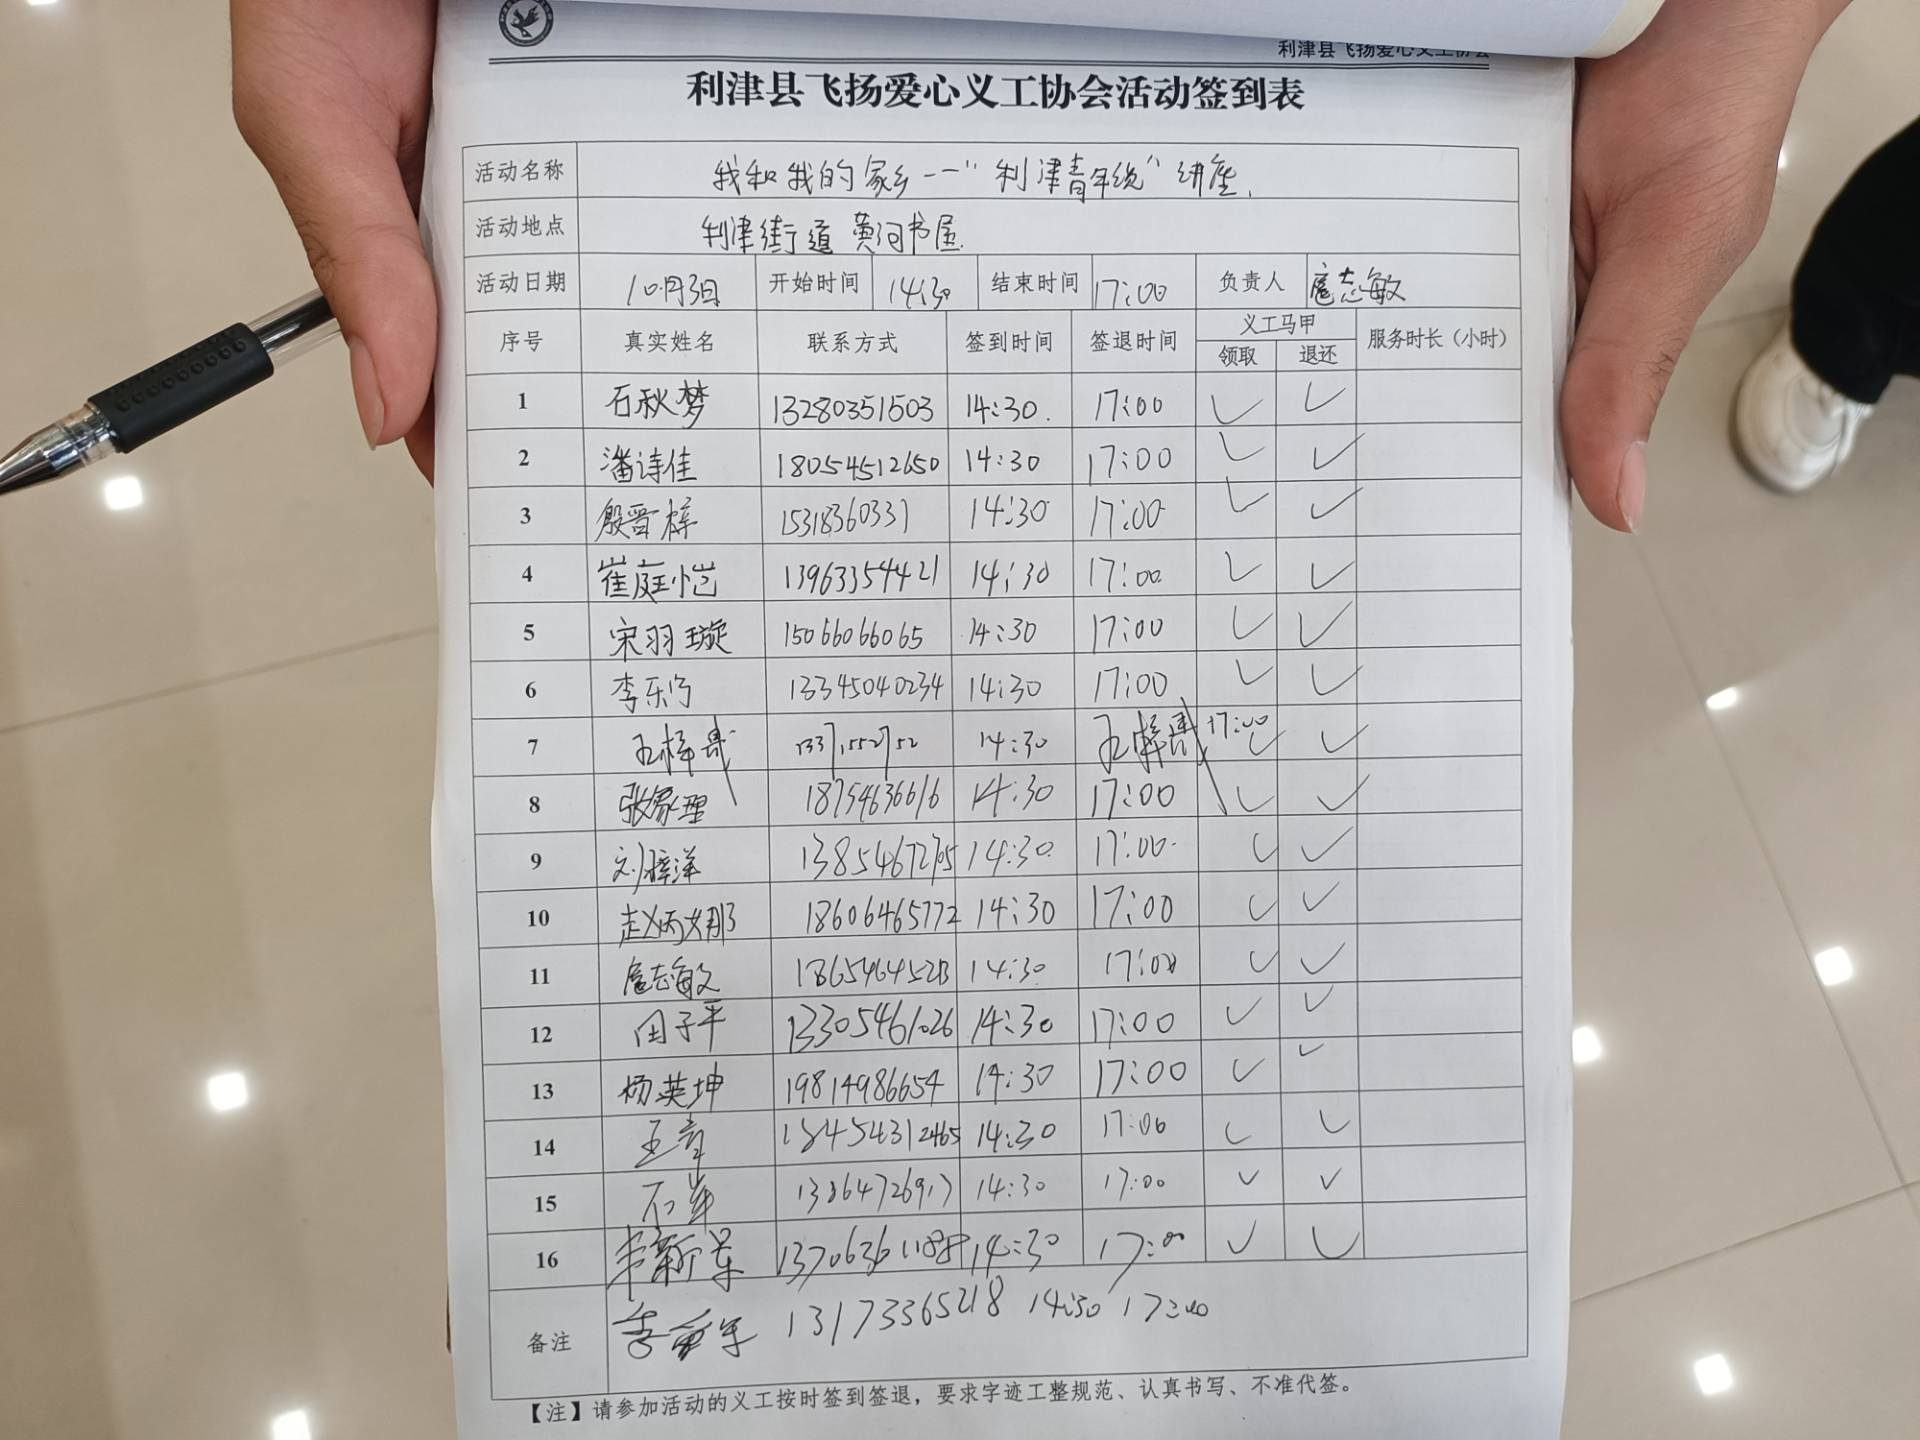 利津县飞扬爱心义工协会
利津县飞扬爱心义工协会活动签到表
活动名称 我和我的家乡--“利津青年说”讲座.
活动地点 利津街道黄河书屋.
活动日期 10月3日 开始时间 14:30 结束时间 17:00 负责人 扈志敏
序号 真实姓名 联系方式 签到时间 签退时间 义工马甲 领取 退还 服务时长（小时）
1 石秋梦 13280351503 14:30. 17:00 ✓ ✓
2 潘诗佳 18054512650 14:30 17:00 ✓ ✓
3 殷晋梓 1531836033 14:30 17:00 ✓ ✓
4 崔庭恺 13963354421 14:30 17:00 ✓ ✓
5 宋羽璇 15066066065 14:30 17:00 ✓ ✓
6 李乐 13345040234 14:30 17:00 ✓ ✓
7 王梓 14:30 王梓 17:00 ✓ ✓
8 张家理 18754636616 14:30 17:00 ✓ ✓
9 刘梓洋 13854672705 14:30 17:00 ✓ ✓
10 赵炳娜 18606465772 14:30 17:00 ✓ ✓
11 扈志敏 14:30 17:00 ✓ ✓
12 田子平 13305461026 14:30 17:00 ✓ ✓
13 杨英坤 19814986654 14:30 17:00 ✓ ✓
14 14:30 17:00 ✓ ✓
15 14:30 17:00 ✓ ✓
16 14:30 17:00 ✓ ✓
备注 李 13173365218 14:30 17:00
【注】请参加活动的义工按时签到签退，要求字迹工整规范、认真书写、不准代签。